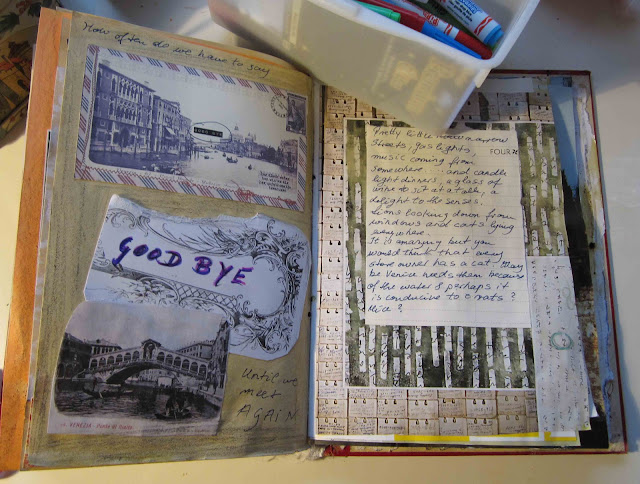 How often do we have to say
GOOD BYE
VENEZIA - Ponte di Rialto
Until we
meet
AGAIN
Pretty little narrow
streets, gas lights
FOUR
music coming from
somewhere and candle
light dinners a glass of
wine to sit at a table a
delight to the senses.
Lions looking down from
windows and cats lying
everywhere.
It is amazing but you
would think that every
store owner has a cat. May
be Venice needs them because
of the water & perhaps it
is conducive to rats ?
Mice ?